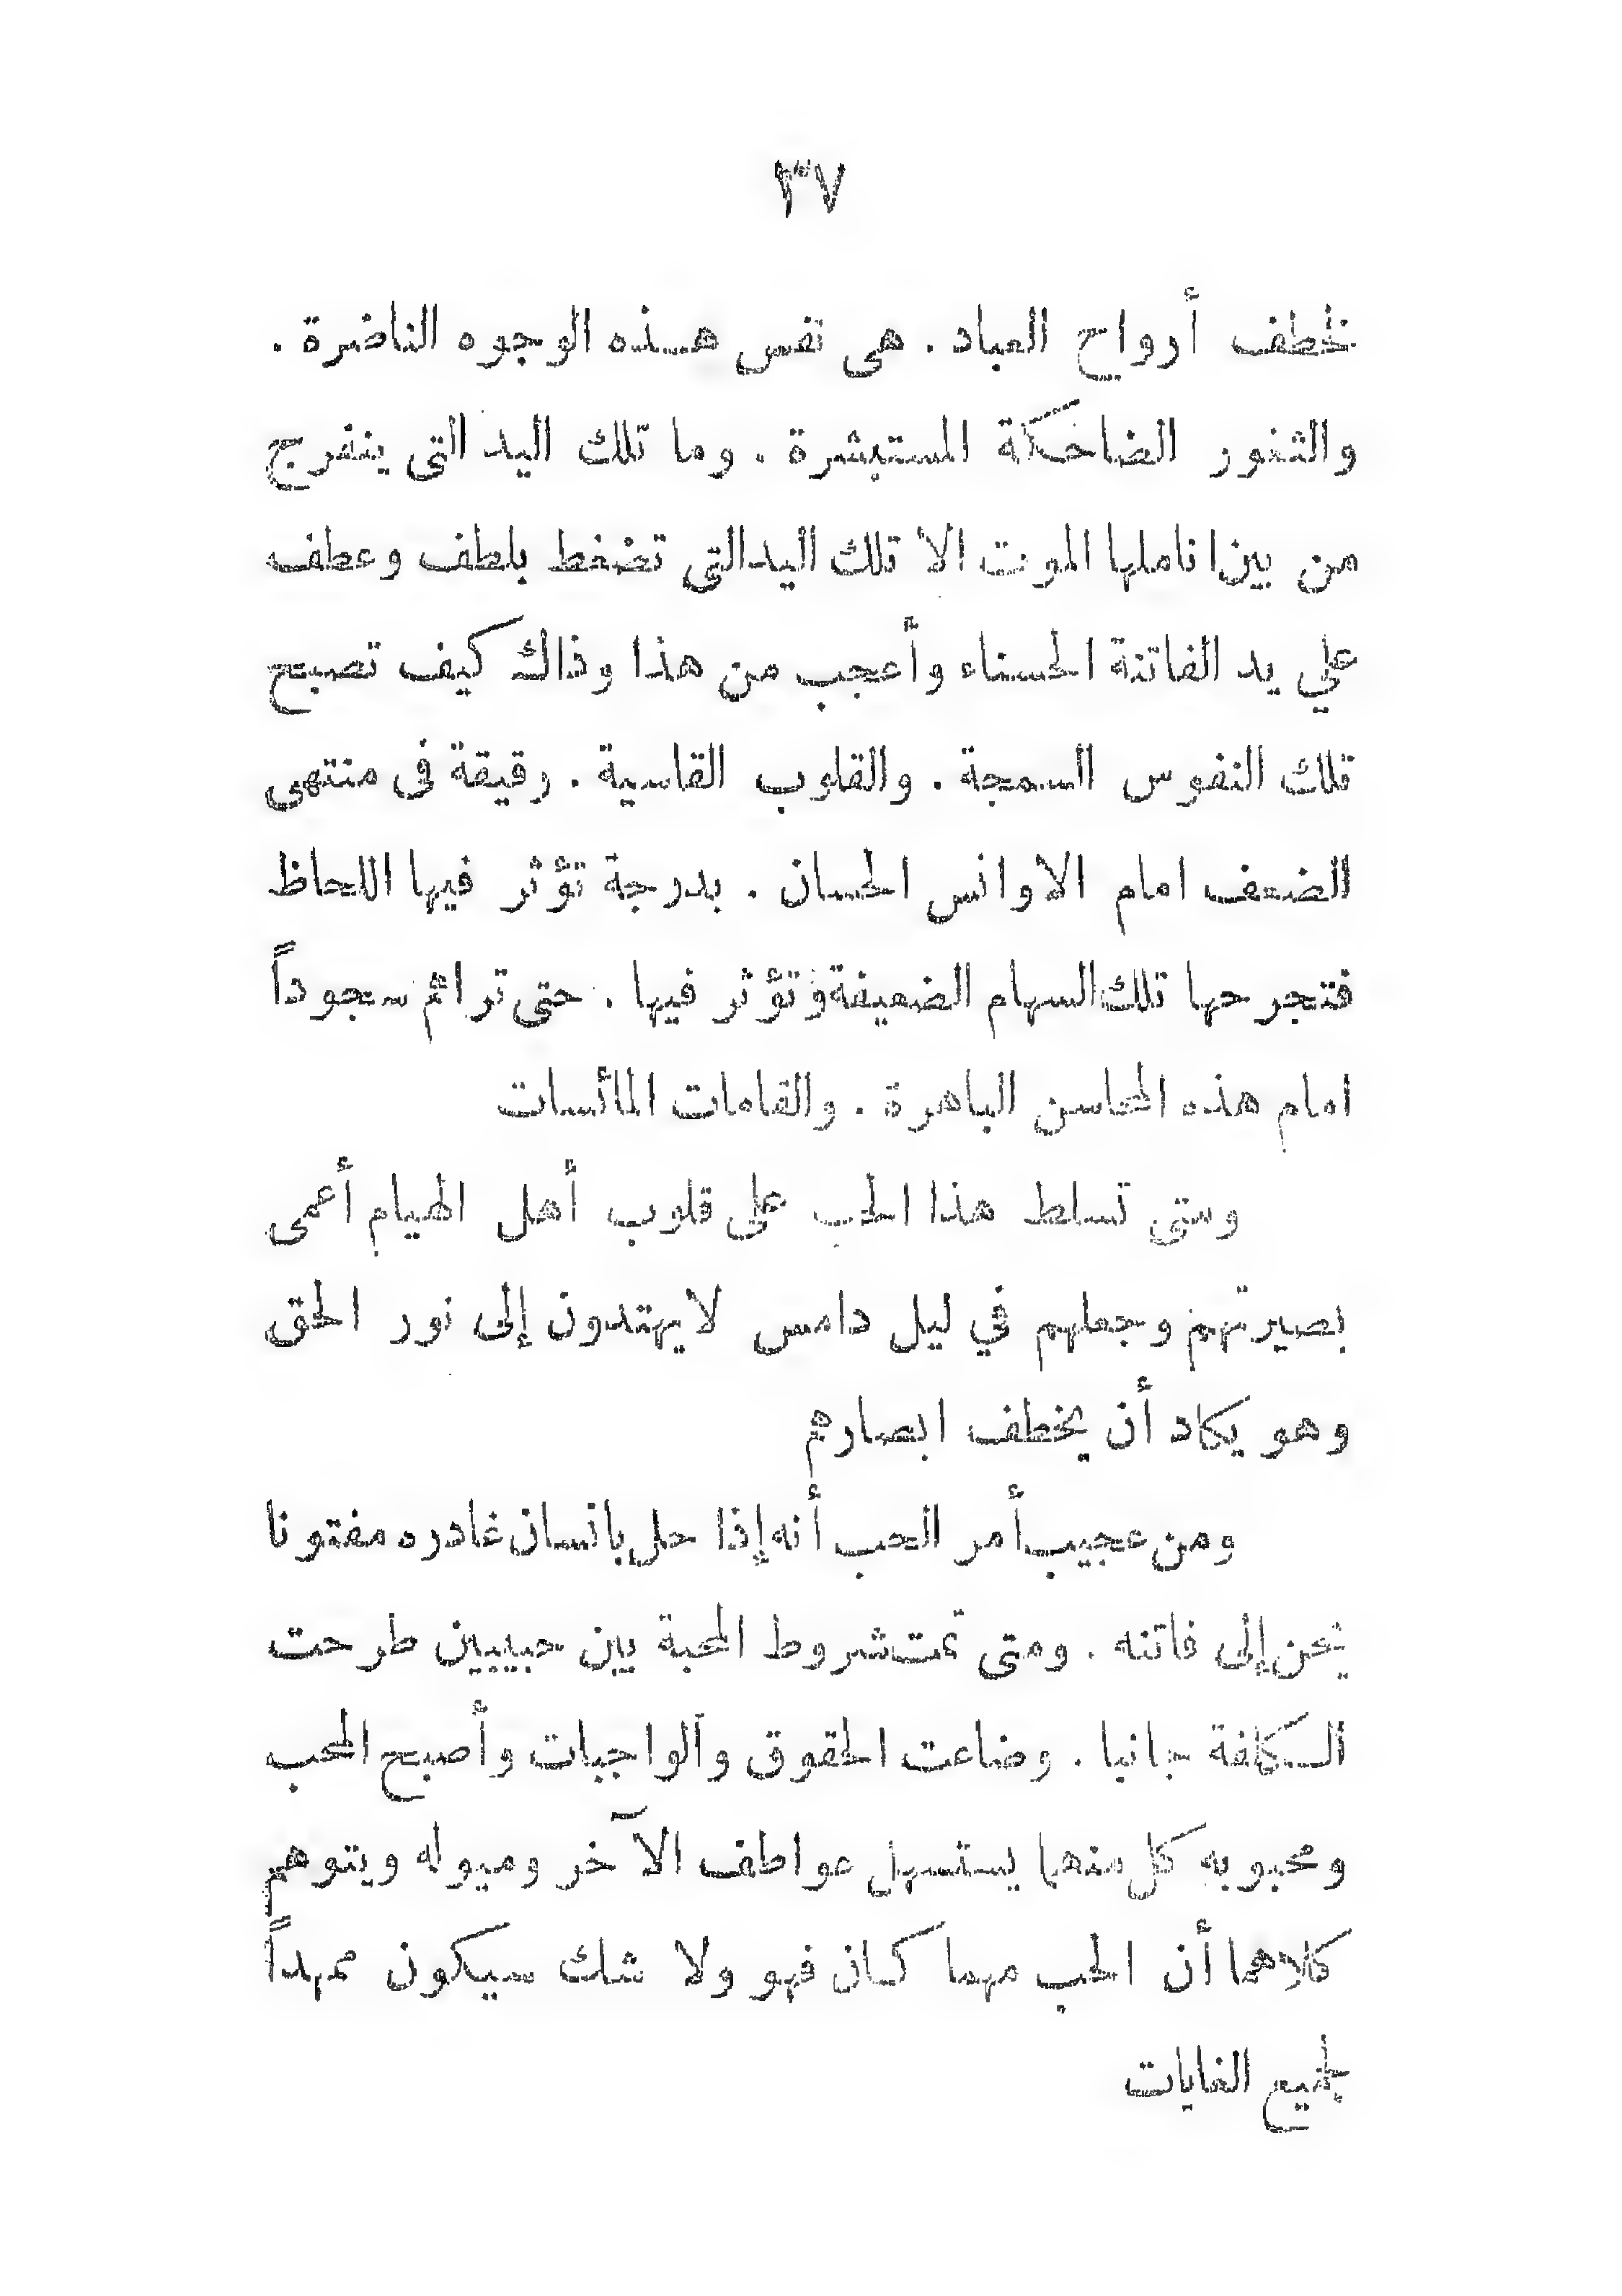 ٣٧
لخطف أرواح العباد . هى نفس هذه الوجوه الناضرة .
والثغور الضاحكة المستبشرة . وما تلك اليد التى ينفرج
من بين اناملها الموت الا تلك اليد التي تضغط بلطف وعطف
علي يد الفاتنة الحسناء وأعجب من هذا وذاك كيف تصبح
تلك النفوس السمجة . والقلوب القاسية . رقيقة فى منتهى
الضعف امام الاوانس الحسان . بدرجة تؤثر فيها اللحاظ
فتجرحها تلك السهام الضعيفة وتؤثر فيها . حتى تراهم سجوداً
امام هذه المحاسن الباهرة . والقامات المائسات
ومتى تسلط هذا الحب على قلوب أهل الهيام أعمى
بصيرتهم وجعلهم في ليل دامس لا يهتدون إلى نور الحق
وهو يكاد أن يخطف ابصارهم
ومن عجيب أمر الحب أنه إذا حل بانسان غادره مفتونا
يحن إلى فاتنه . ومتى تمت شروط المحبة بين حبيبين طرحت
الكلفة جانبا . وضاعت الحقوق والواجبات وأصبح المحب
ومحبوبه كل منهما يستسهل عواطف الآخر وميوله ويتوهم
كلاهما أن الحب مهما كان فهو ولا شك سيكون ممهداً
لجميع الغايات